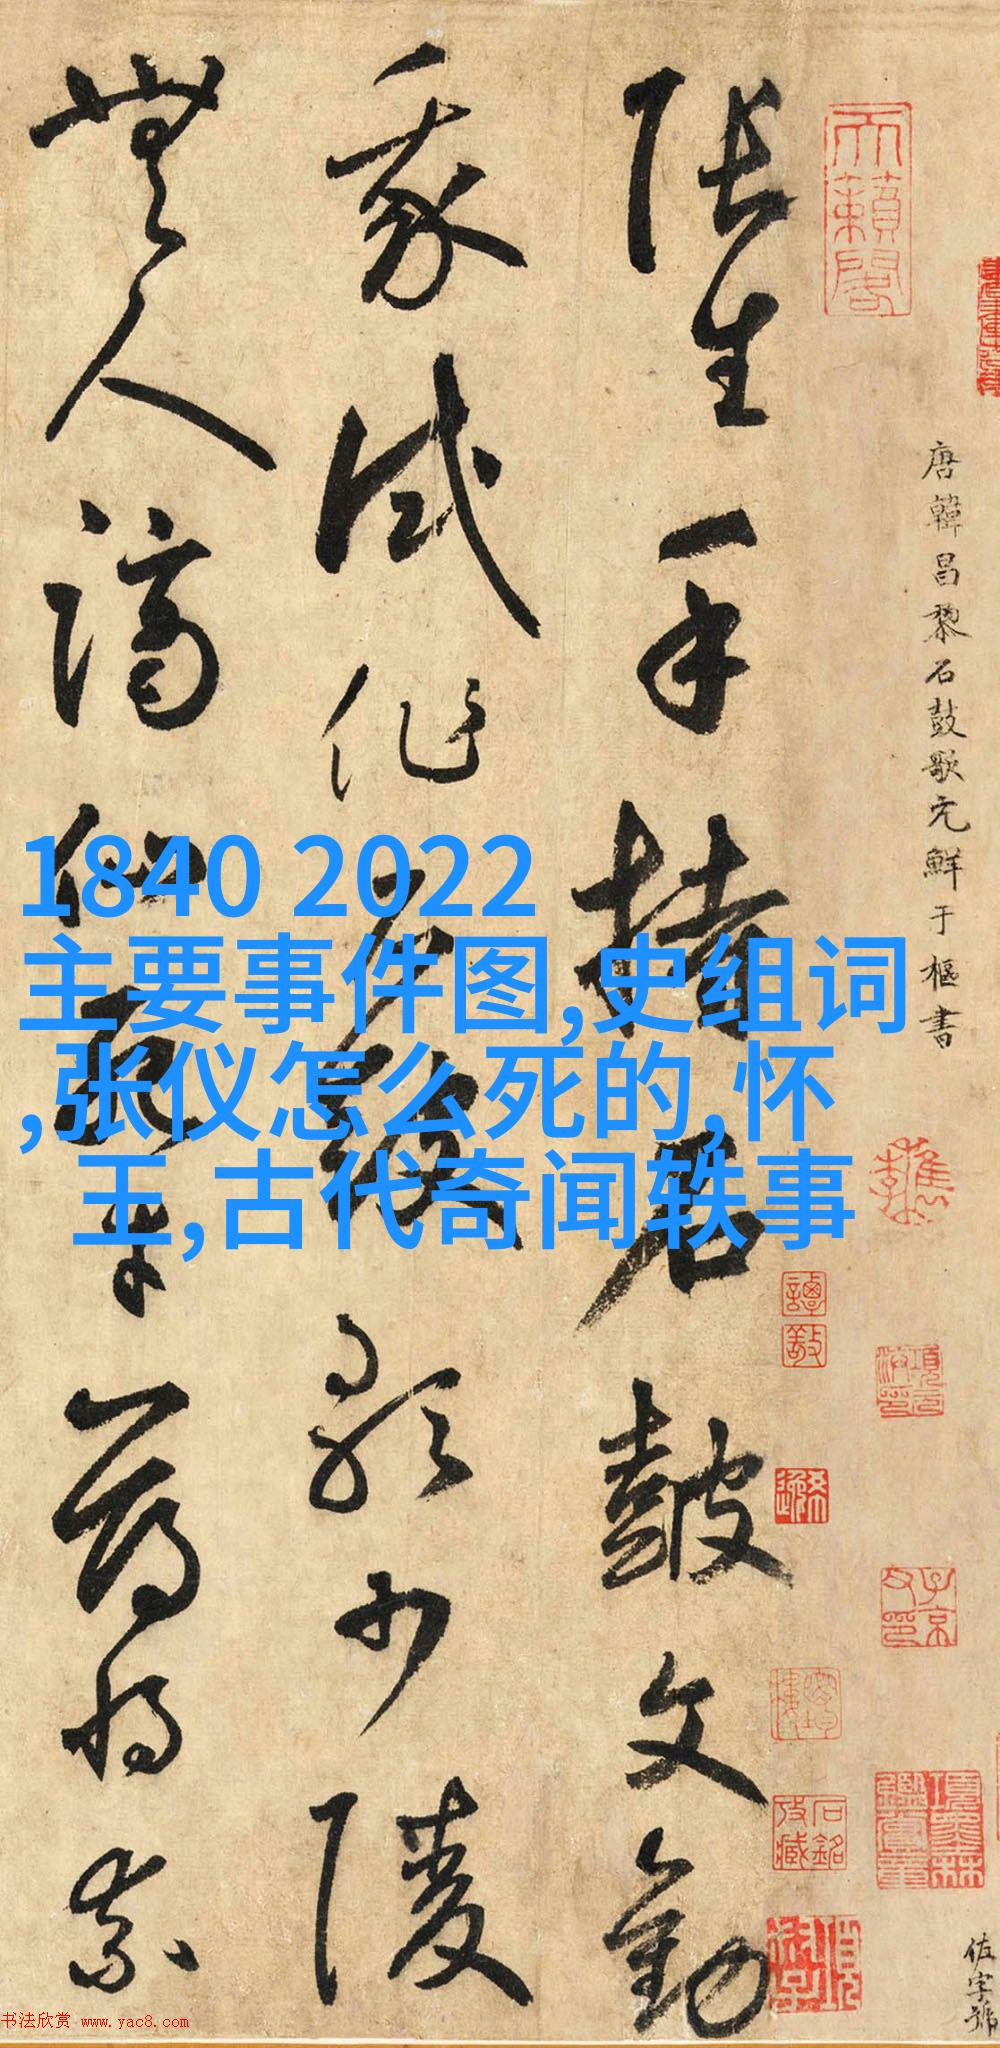 張生手持石鼓文勸
我試作石鼓歌少陵
無人謫仙死才薄將奈
唐韓昌黎石鼓歌元鮮于樞書
天籟閣
佐字號
1840 2022
主要事件图,史组词
,张仪怎么死的,怀
王,古代奇闻轶事
书法欣赏 www.yac8.com